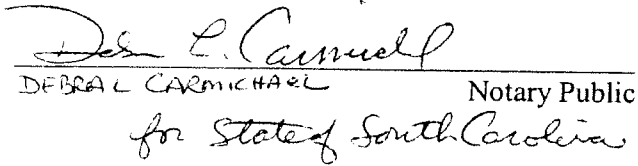 Debra L. Carmichael
DEBRA L CARMICHAEL Notary Public
for State of South Carolina